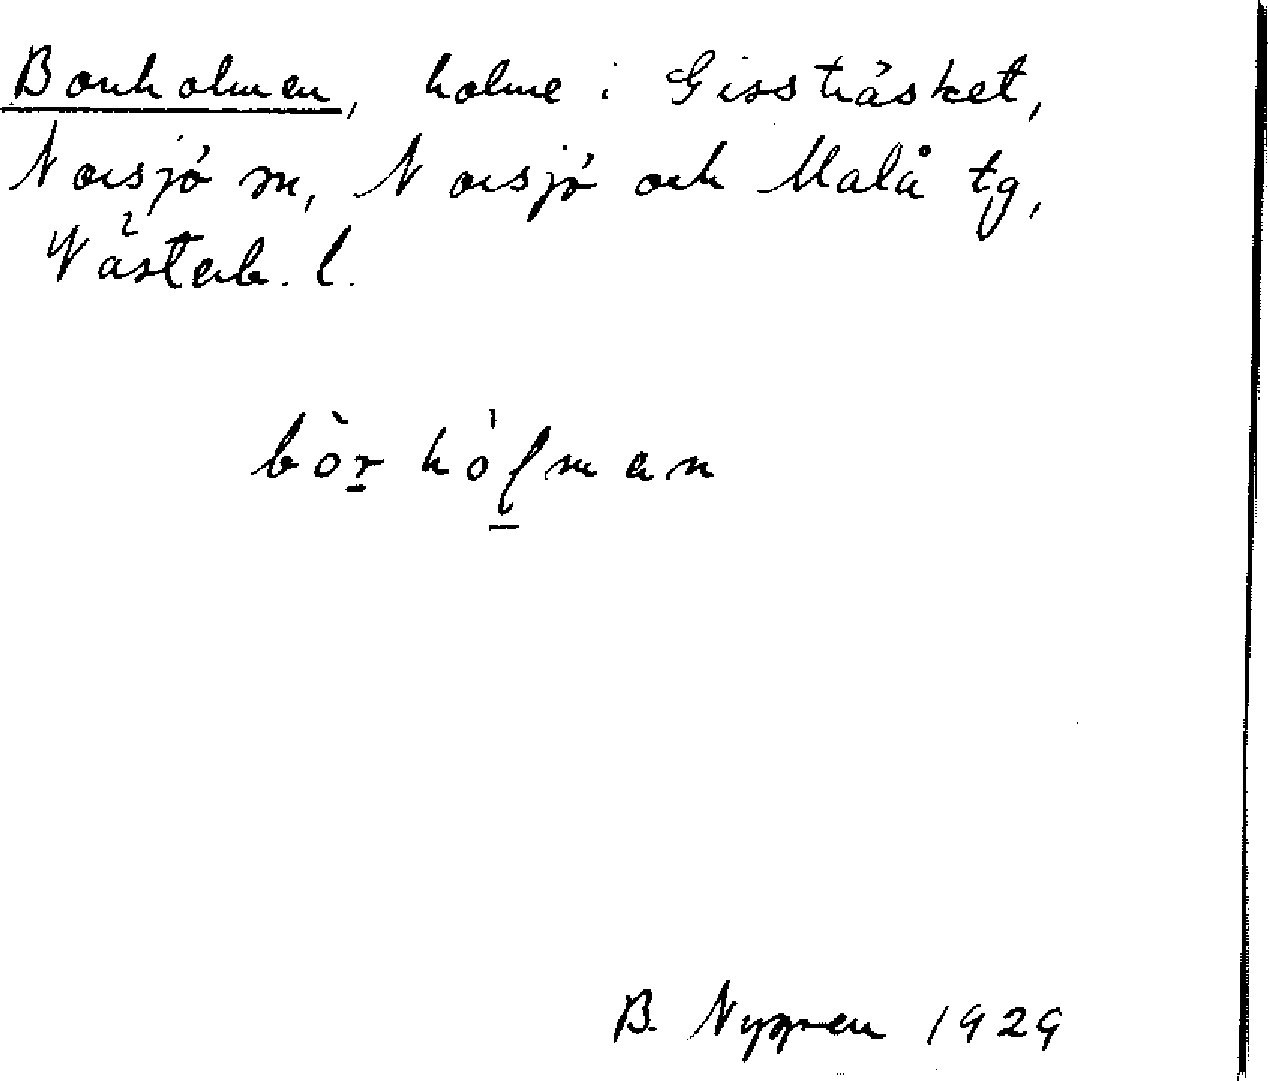 Borrholmen, holme i Gissträsket,
Norsjö sn, Norsjö och Malå tg,
Västerb. l.
bòr hólman
B. Nygren 1929